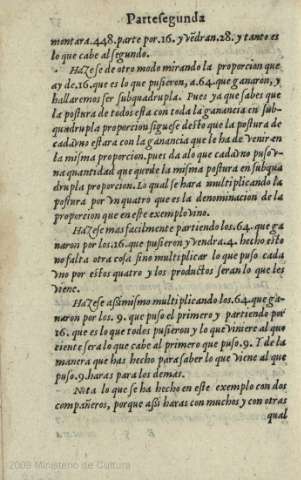 Parte segunda
montara.448.parte por.16. y vẽdran.28. y tanto es
lo que cabe al segundo.
Hazese de otro modo mirando la proporcion que
ay de.16. que es lo que pusieron, a.64. que ganaron, y
hallaremos ser subquadrupla. Pues ya que sabes que
la postura de todos esta con toda la ganancia en sub-
quadrupla proporcion siguese desto que la postura de
cadavno estara con la ganancia que le ha de venir en
la misma proporcion. pues da alo que cadavno puso v-
na quantidad que quede la misma postura en subqua
drupla proporcion. Lo qual se hara multiplicando la
postura por vn quatro que es la denominacion de la
proporcion que en este exemplo vino.
Hazese mas facilmente partiendo los.64. que ga
naron por los.16. que pusieron y vendra.4. hecho esto
no falta otra cosa sino multiplicar lo que puso cada
vno por estos quatro y los productos seran lo que les
viene.
Hazese assi mismo multiplicando los.64. que ga-
naron por los. 9. que puso el primero y partiendo por
16. que es lo que todos pusieron y lo que viniere al quo
tiente sera lo que cabe al primero que puso.9. Y de la
manera que has hecho para saber lo que viene al que
puso.9. haras para los demas.
Nota lo que se ha hecho en este exemplo con dos
compañeros, porque assi haras con muchos y con otras
qual
2009 Ministerio de Cultura